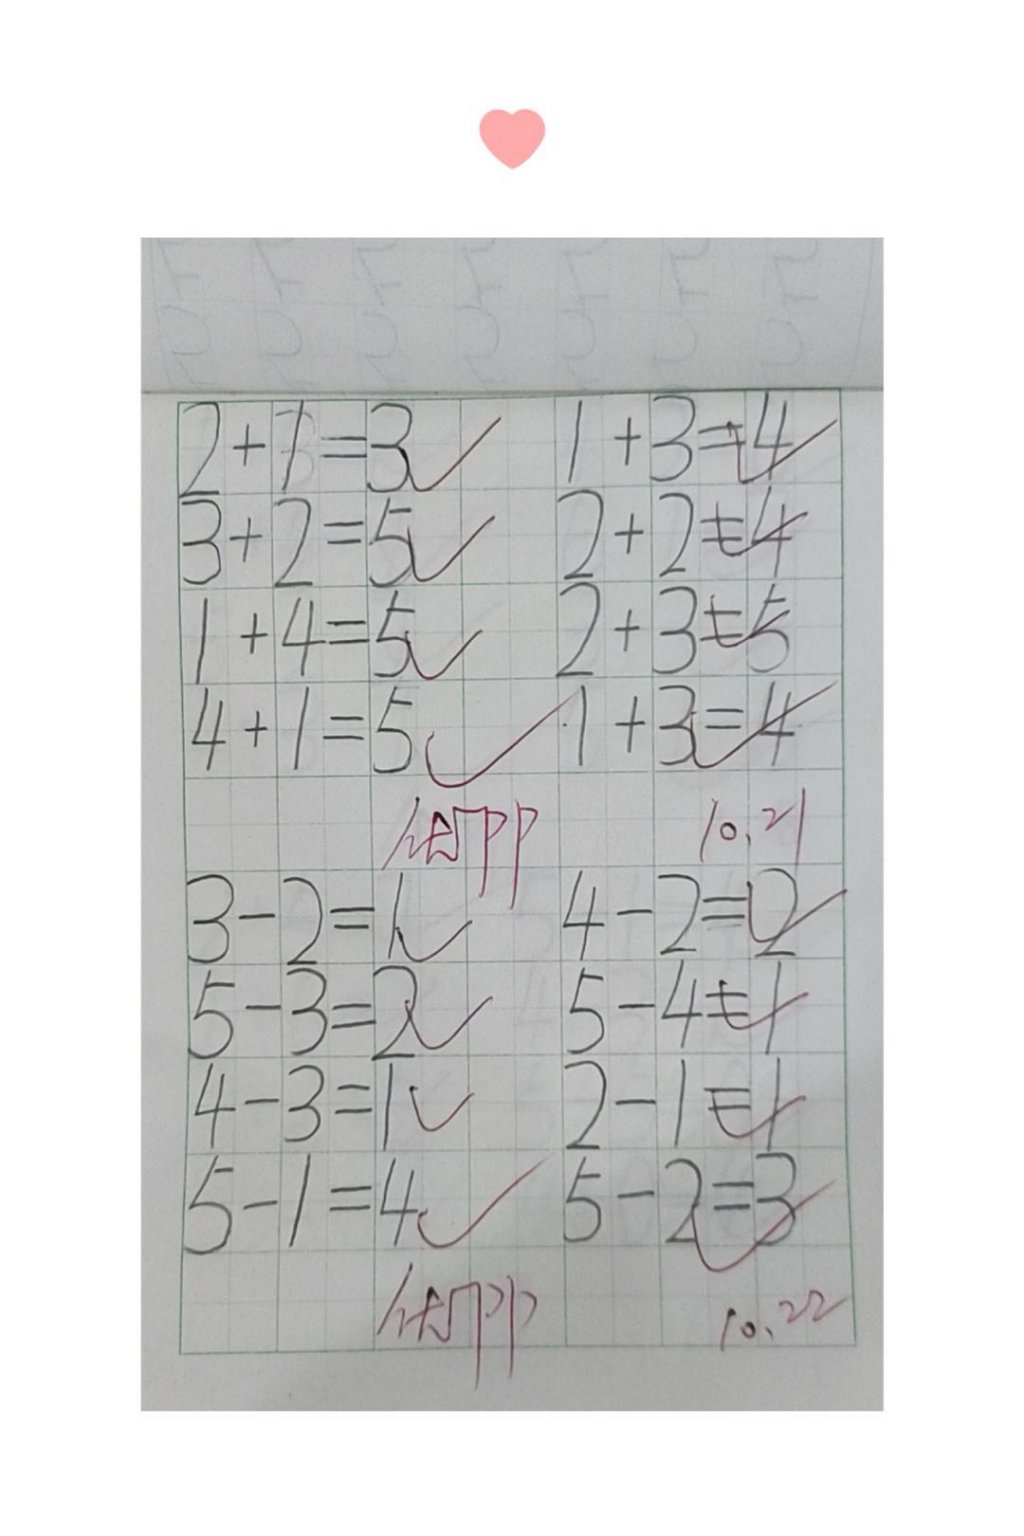 2+1=3 1+3=4
3+2=5 2+2=4
1+4=5 2+3=5
4+1=5 1+3=4
10.21
3-2=1 4-2=2
5-3=2 5-4=1
4-3=1 2-1=1
5-1=4 5-2=3
10.22